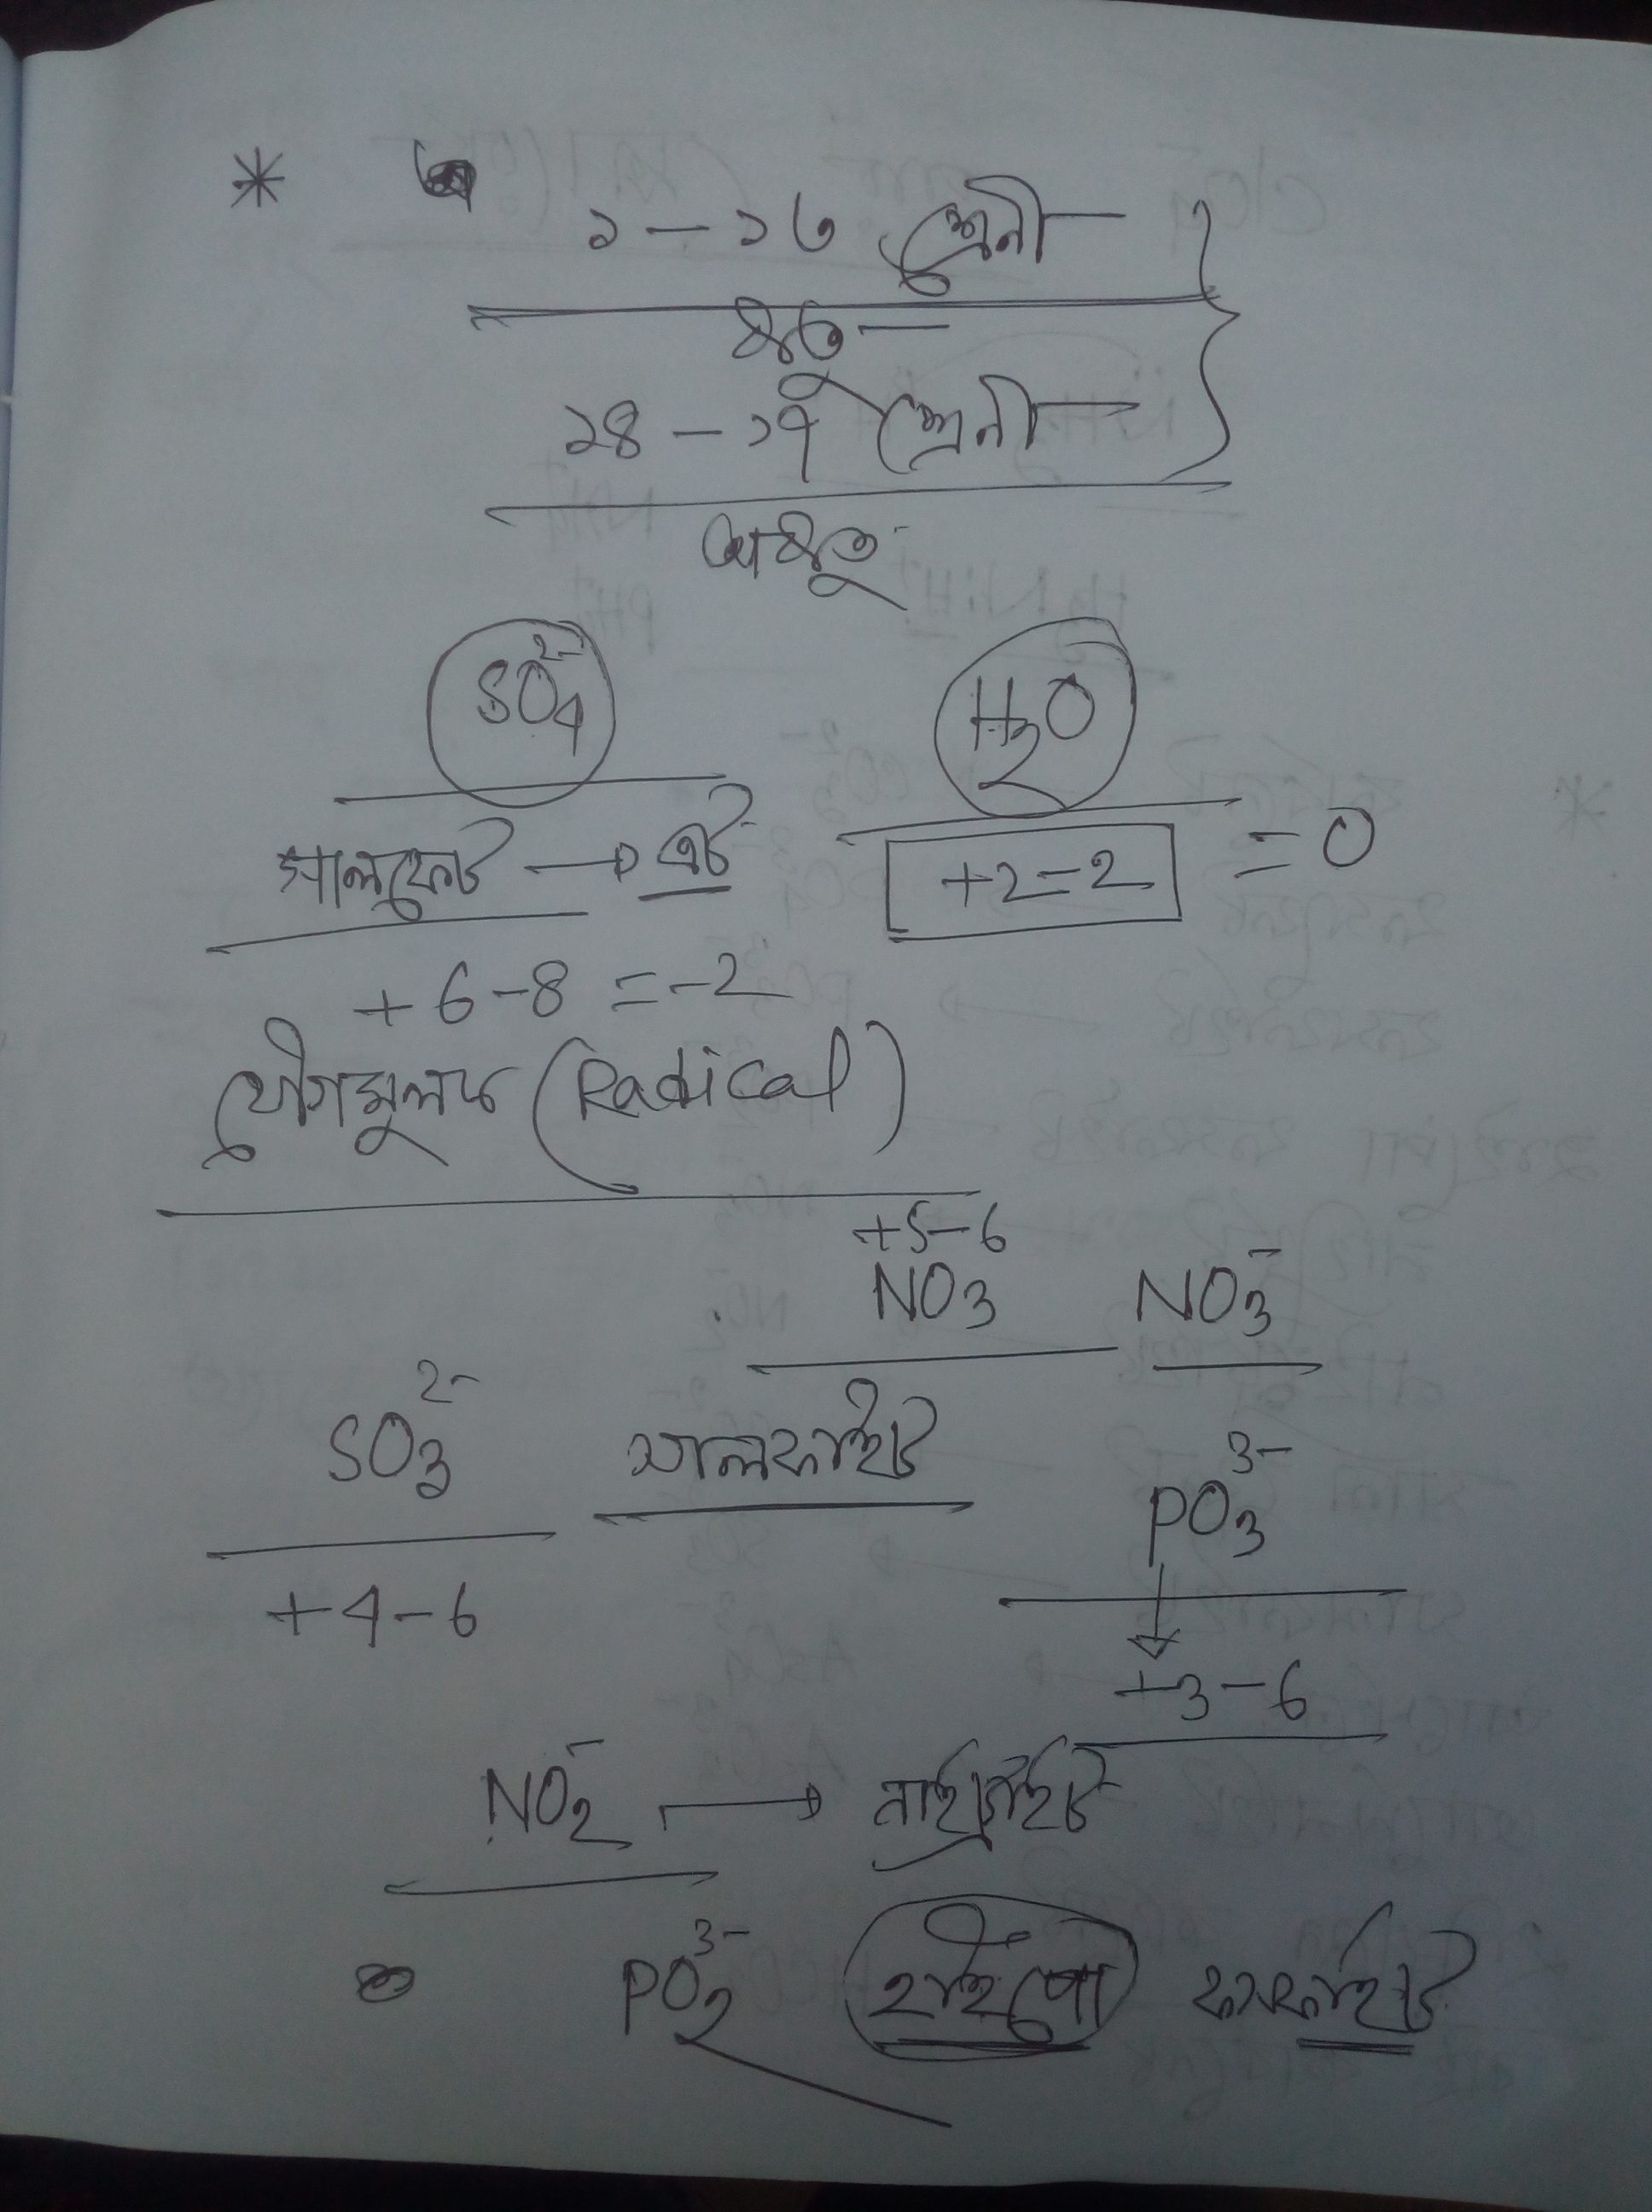 * ১ – ১৩ শ্রেনী
ধাতু
১৪ – ১৭ শ্রেনী
অধাতু
SO₄²⁻ H₂O
সালফেট → এট +2-2 = 0
+6-8 = -2
যৌগমূলক (Radical)
+5-6
NO₃ NO₃⁻
SO₃²⁻ সালফাইট
PO₃³⁻
+4-6
+3-6
NO₂⁻ → নাইট্রাইট
PO₂³⁻ হাইপো ফসফাইট